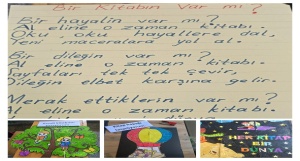 Bir Kitabın var mı?
Bir hayalin var mı?
Al eline o zaman kitabı.
Oku, oku hayallere dal,
Yeni maceralara yol al.
Bir dileğin var mı?
Al eline o zaman kitabı.
Sayfaları tek tek çevir,
Dileğin elbet karşına gelir.
Merak ettiklerin var mı?
Al eline o zaman kitabı.
HER KİTAP
BİR
DÜNYA